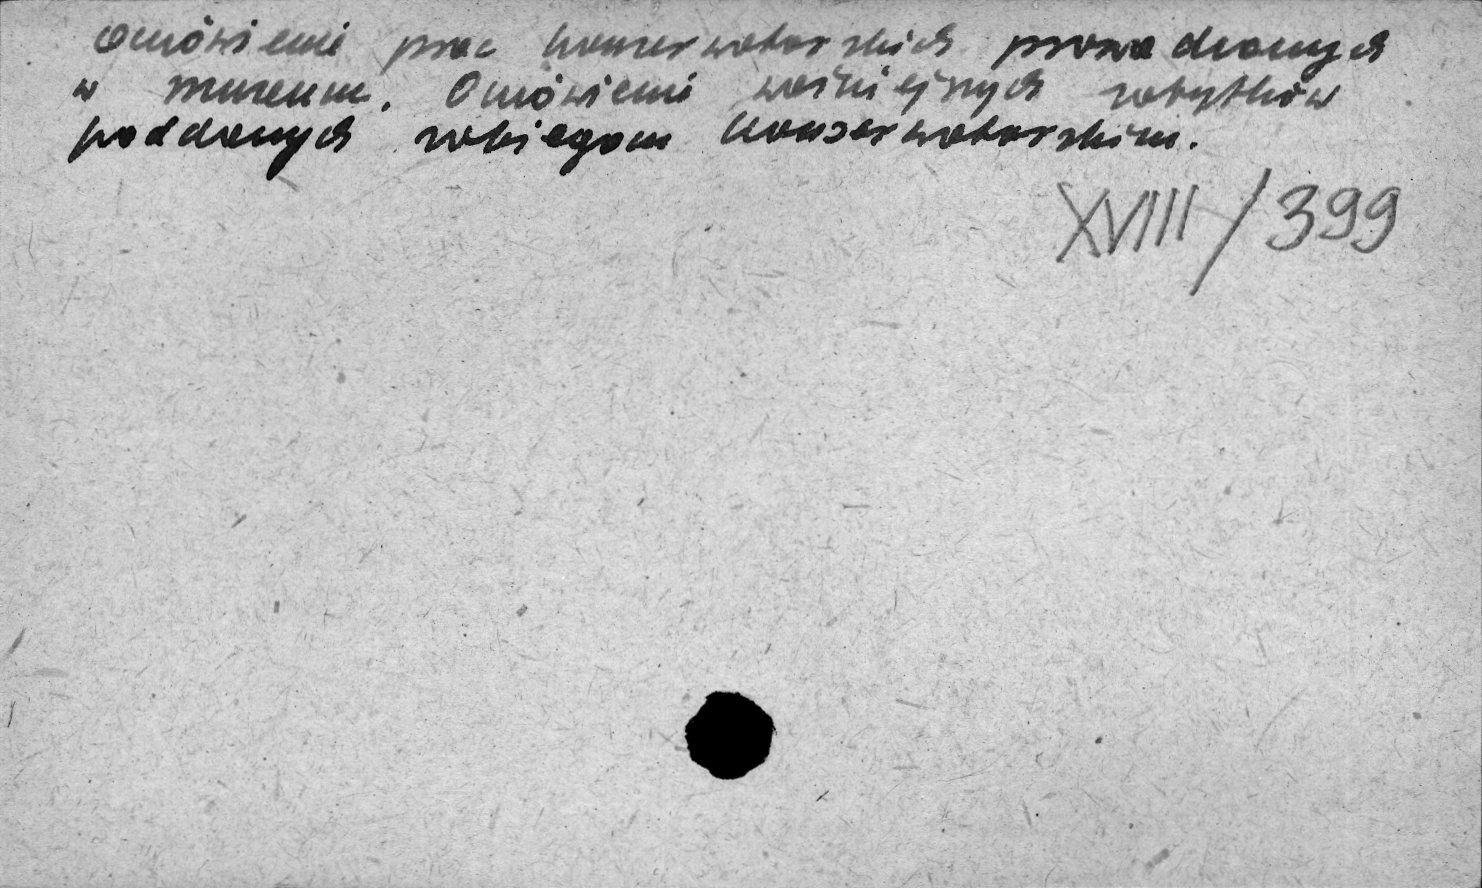 Omówienie prac konserwatorskich prowadzonych
w muzeum. Omówienie ważniejszych zabytków
poddanych zabiegom konserwatorskim.
XVIII/399